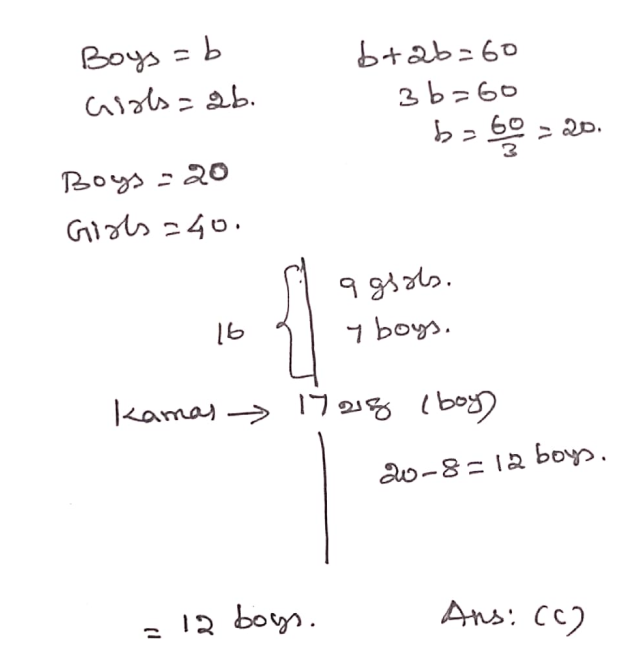 Boys = b
Girls = 2b.
b+2b=60
3b=60
b = 60/3 = 20.
Boys = 20
Girls = 40.
16
9 girls.
7 boys.
Kamal → 17வது (boy)
20-8=12 boys.
= 12 boys.
Ans: (c)